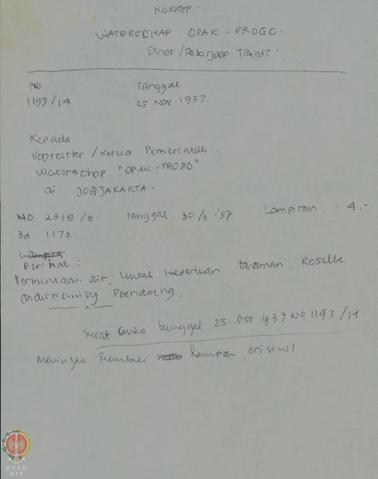 KONSEP
WATERSCHAP OPAK - PROGO.
Dinas / Pekerjaan Teknis
NO Tanggal
1193/14 25 NOV 1937.
Kepada
Voorzitter / Ketua Pemerintah
Waterschap "OPAK-PROGO"
di JOGJAKARTA.
NO Tanggal 30/11-'37 Lampiran 4.-
Bd 1170.
Perihal :
Permintaan air, untuk keperluan tanaman Roselle
onderneming Poendoeng.
Surat tanggal 25 1937 No 1193/14.
lampiran orisinil
DPAD
DIY